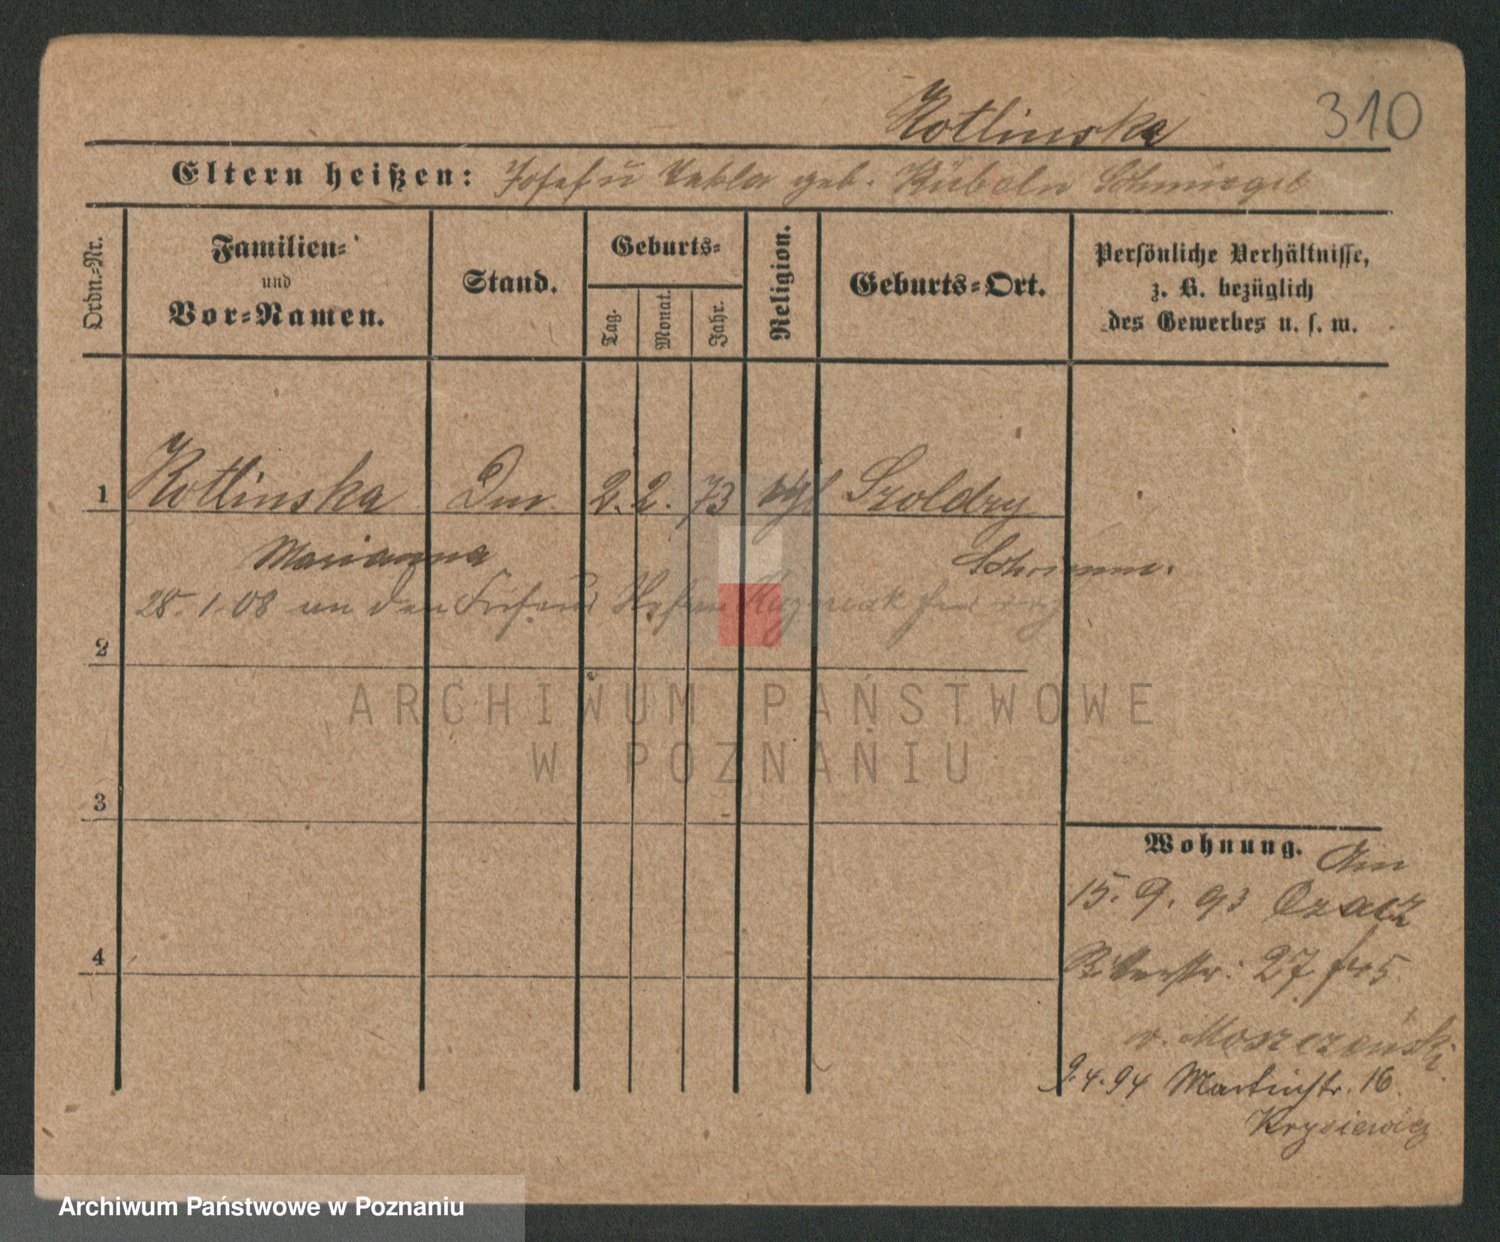 Kotlinska 310
Eltern heißen: Josef u Tekla geb. Kübeln Schmiegel
Ordn.-Nr.
Familien-
und
Vor-Namen.
Stand.
Geburts-
Tag.
Monat.
Jahr.
Religion.
Geburts-Ort.
Persönliche Verhältnisse,
z. B. bezüglich
des Gewerbes u. s. w.
1 Kotlinska 2. 2. 73 Szoldry
Marianna Schrimm.
28. 1. 08 an den
2
ARCHIWUM PAŃSTWOWE
W POZNANIU
3
Wohnung.
15. 9. 93
4
27
v. Moszczenski
9.4.94 Martinstr. 16
Krysiewicz
Archiwum Państwowe w Poznaniu